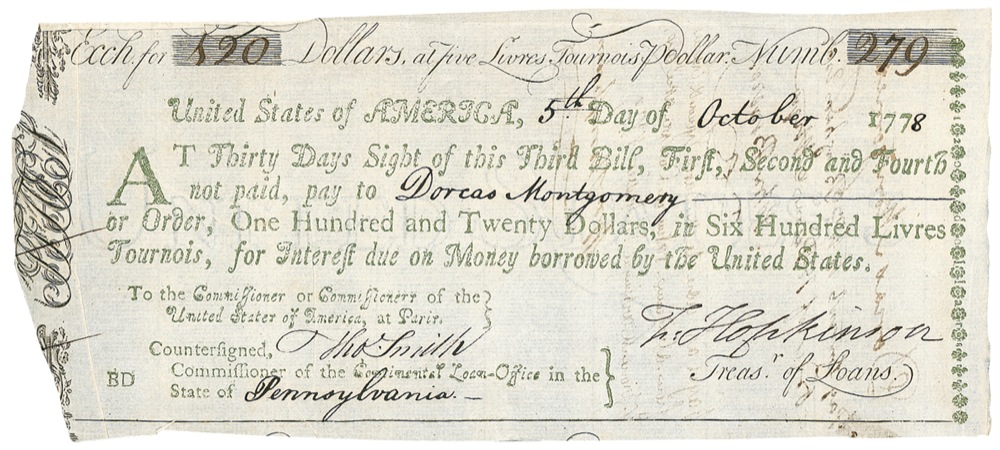 Exch. for 120 Dollars, at five Livres Tournois ꝑ Dollar. Numb. 279
United States of AMERICA, 5th. Day of October 1778
AT Thirty Days Sight of this Third Bill, Firſt, Second and Fourth
not paid, pay to Dorcas Montgomery
or Order, One Hundred and Twenty Dollars, in Six Hundred Livres
Tournois, for Intereſt due on Money borrowed by the United States.
To the Commiſſioner or Commiſſioners of the
United States of America, at Paris.
Countersigned, Thos. Smith
Commissioner of the Continental Loan-Office in the
State of Pennsylvania.
BD
F. Hopkinson
Treasr. of Loans